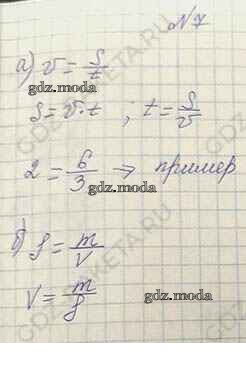 №7
а) v = s/t
gdz.moda
s = v·t ; t = s/v
2 = 6/3 → пример
gdz.moda
б) ρ = m/V
V = m/ρ
gdz.moda